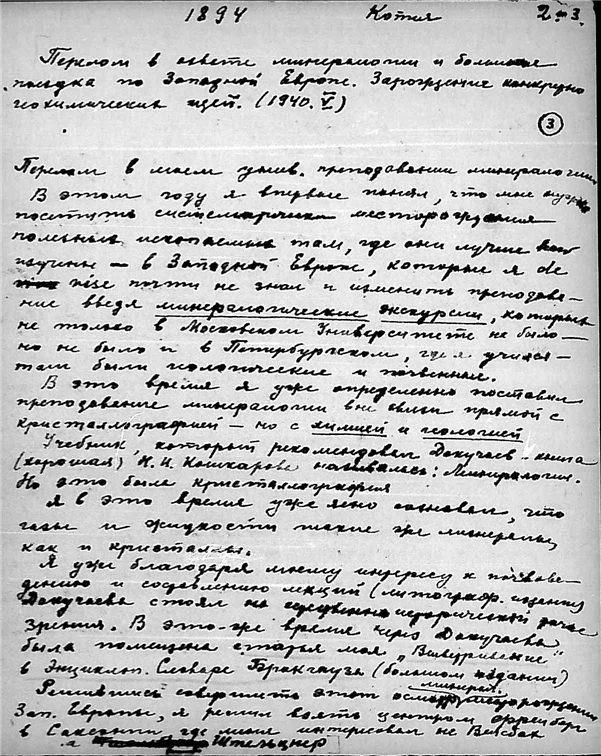 1894 Копия 2-3.
Перелом в ответе минералогии и большая
поездка по Западной Европе. Зарождение конкретно
геохимических идей. (1940. V)
3
Перелом в моем унив. преподавании минералогии
В этом году я впервые понял, что мне нужно
посетить систематически месторождения
полезных ископаемых там, где они лучше
изучены — в Западной Европе, которые я de
vise почти не знал и изменить преподава-
ние введя минералогические экскурсии, которых
не только в Московском Университете не было —
но не было и в Петербургском, где я учился —
там были геологические и почвенные.
В это время я уже определенно поставил
преподавание минералогии вне связи прямой с
кристаллографией — но с химией и геологией
Учебник, который рекомендовал Докучаев — книга
(хорошая) Н. И. Кокшарова называлась: Минералогия.
Но это была кристаллография
Я в это время уже ясно сознавал, что
газы и жидкости такие же минералы,
как и кристаллы.
Я уже благодаря моему интересу к почвове-
дению и составлению лекций (литограф. издания)
Докучаева стоял на исторической точке
зрения. В это-же время через Докучаева
была помещена статья моя „Выветривание"
в Энциклоп. Словаре Брокгауза (большом издании)
Решивши совершить этот осмотр минерал. месторождений
Зап. Европы, я решил взять центром Фрейберг
в Саксонии где меня интересовал не Вейсбах
а Штельцнер